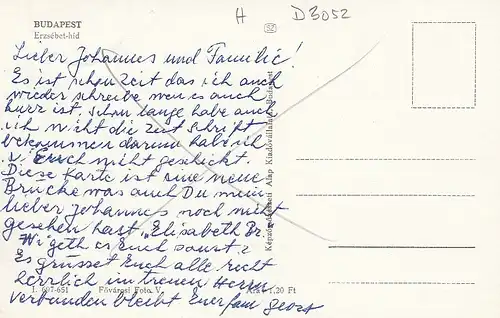 H
D 3052
SZ
BUDAPEST
Erzsébet-híd
Lieber Johannes und Familie!
Es ist schon Zeit das ich auch
wieder schreibe wen es auch
kurz ist. Schon lange habe auch
ich nicht die zeit schrift
bekommen darum habe ich
Euch nicht geschickt.
Diese Karte ist eine neue
Brücke was auch Du mein
lieber Johannes noch nicht
gesehen hast. "Elisabeth Br.
Wi geth es Euch sonst?
Es grüsset Euch alle recht
herrlich im treuen Herrn
verbunden bleibt Euer fam Georg
I. 607-651
Fővárosi Foto V.
Ára: 1,20 Ft
Képzőművészeti Alap Kiadóvállalata, Budapest